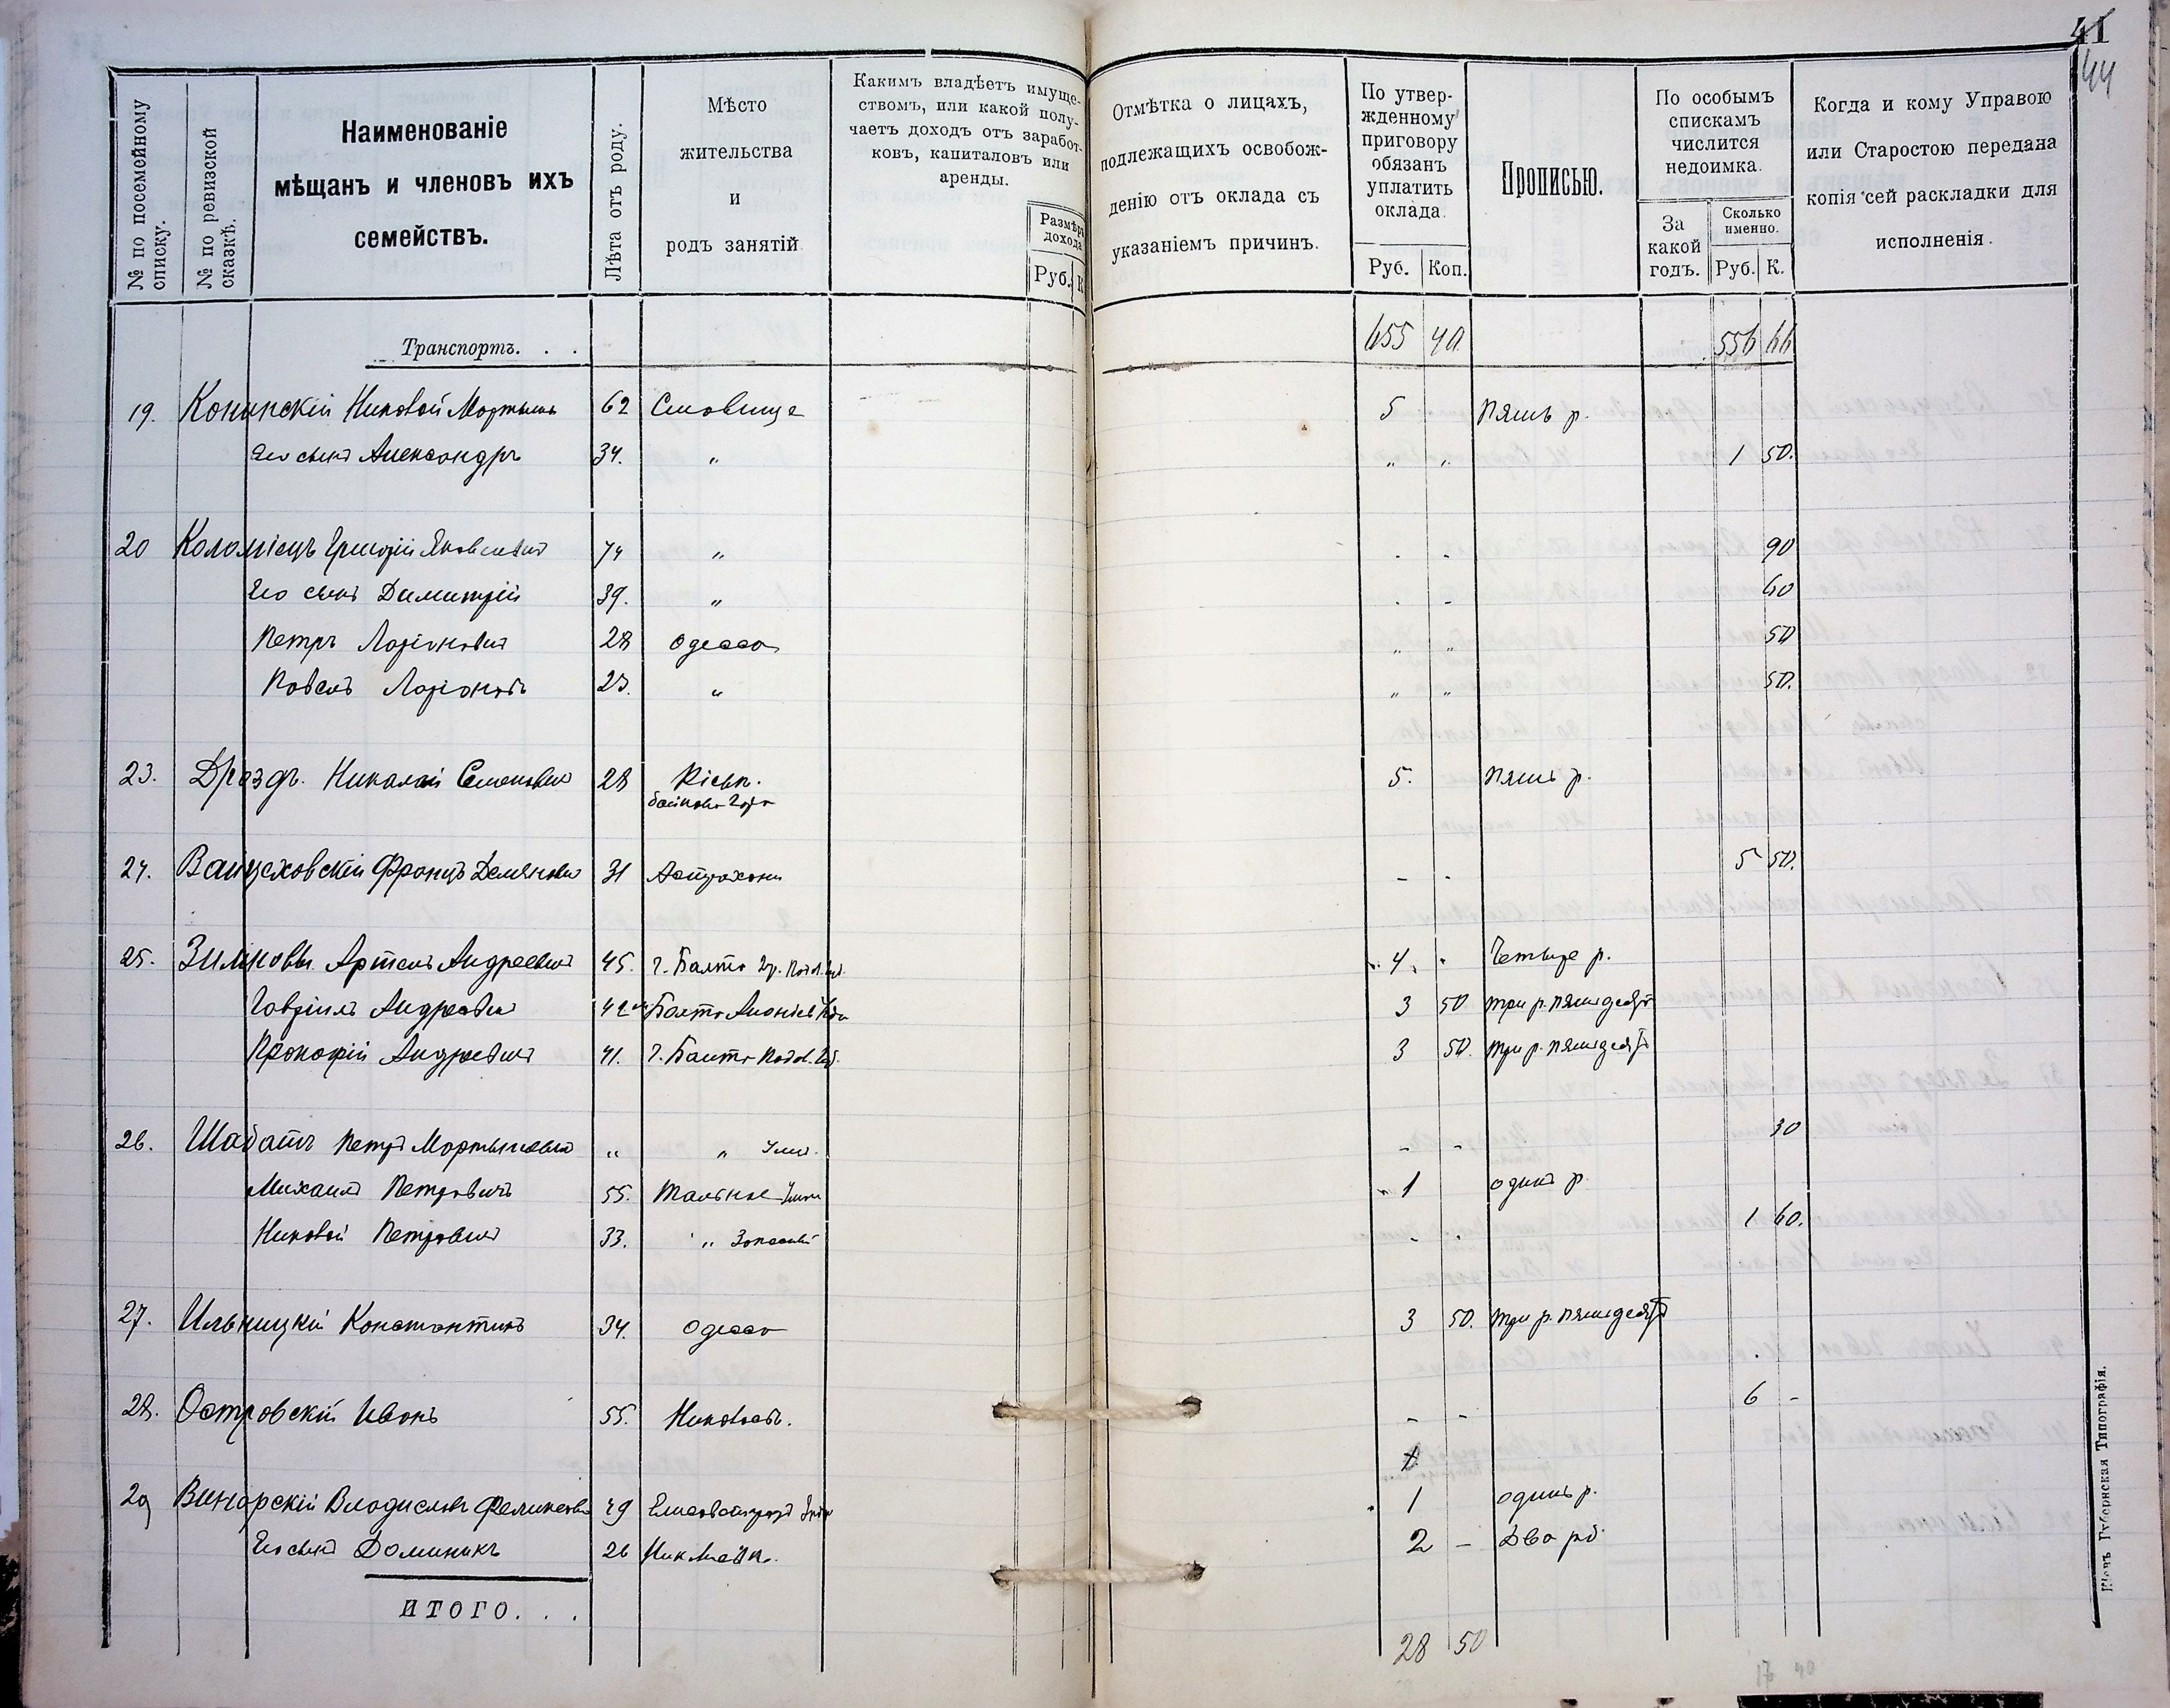 41
44
№ по посемейному списку.
№ по ревизской сказкѣ.
Наименованіе
мѣщанъ и членовъ ихъ
семействъ.
Лѣта отъ роду.
Мѣсто
жительства
и
родъ занятій
Какимъ владѣетъ имуще-
ствомъ, или какой полу-
чаетъ доходъ отъ заработ-
ковъ, капиталовъ или
аренды.
Размѣръ
дохода
Руб. К
Отмѣтка о лицахъ,
подлежащихъ освобож-
денію отъ оклада съ
указаніемъ причинъ.
По утвер-
жденному
приговору
обязанъ
уплатить
оклада.
Руб. Коп.
Прописью.
По особымъ
спискамъ
числится
недоимка.
За
какой
годъ.
Сколько
именно.
Руб. К.
Когда и кому Управою
или Старостою передана
копія сей раскладки для
исполненія.
Транспортъ. . . 655 40 556 66
19. 62 5 Пять р.
Его сынъ Александръ 34. „ „ „ 1 50.
20 Коломіецъ Григорій Яковлевичъ 74 „ - - 90
Его сынъ Димитрій 39. „ - - 60
Петръ Ларіоновичъ 28 Одесса „ „ 50
Павелъ Ларіоновъ 23. „ „ „ 50.
23. Дроздъ. Николай Семеновичъ 28 Кіевъ. 5. Пять р.
Байкова Гора
24. Францъ 31 Астрахань - - 5 50.
25. Артемъ Андреевичъ 45. г. Балта 4. „ Четыре р.
Гавріилъ Андреевичъ 42 Балта 3 50 три р. пятьдесят
Прокофій Андреевичъ 41. г. Балта Подол. Губ. 3 50. три р. пятьдесят
26. Шабатъ Петръ Мартыновичъ „ „ - - 30
Михаилъ Петровичъ 55. Тальное 1 одинъ р.
Николай Петровичъ 33. „ Запасный - - 1 60.
27. Ильницкій Константинъ 34. Одесса 3 50. три р. пятьдесят
28. Островскій Иванъ 55. Николаевъ. - - 6 -
29 Винарскій Владиславъ 49 1 одинъ р.
Его сынъ Доминикъ 26 2 - Два рб
ИТОГО. . .
28 50
16 40
Кіевъ. Губернская Типографія.